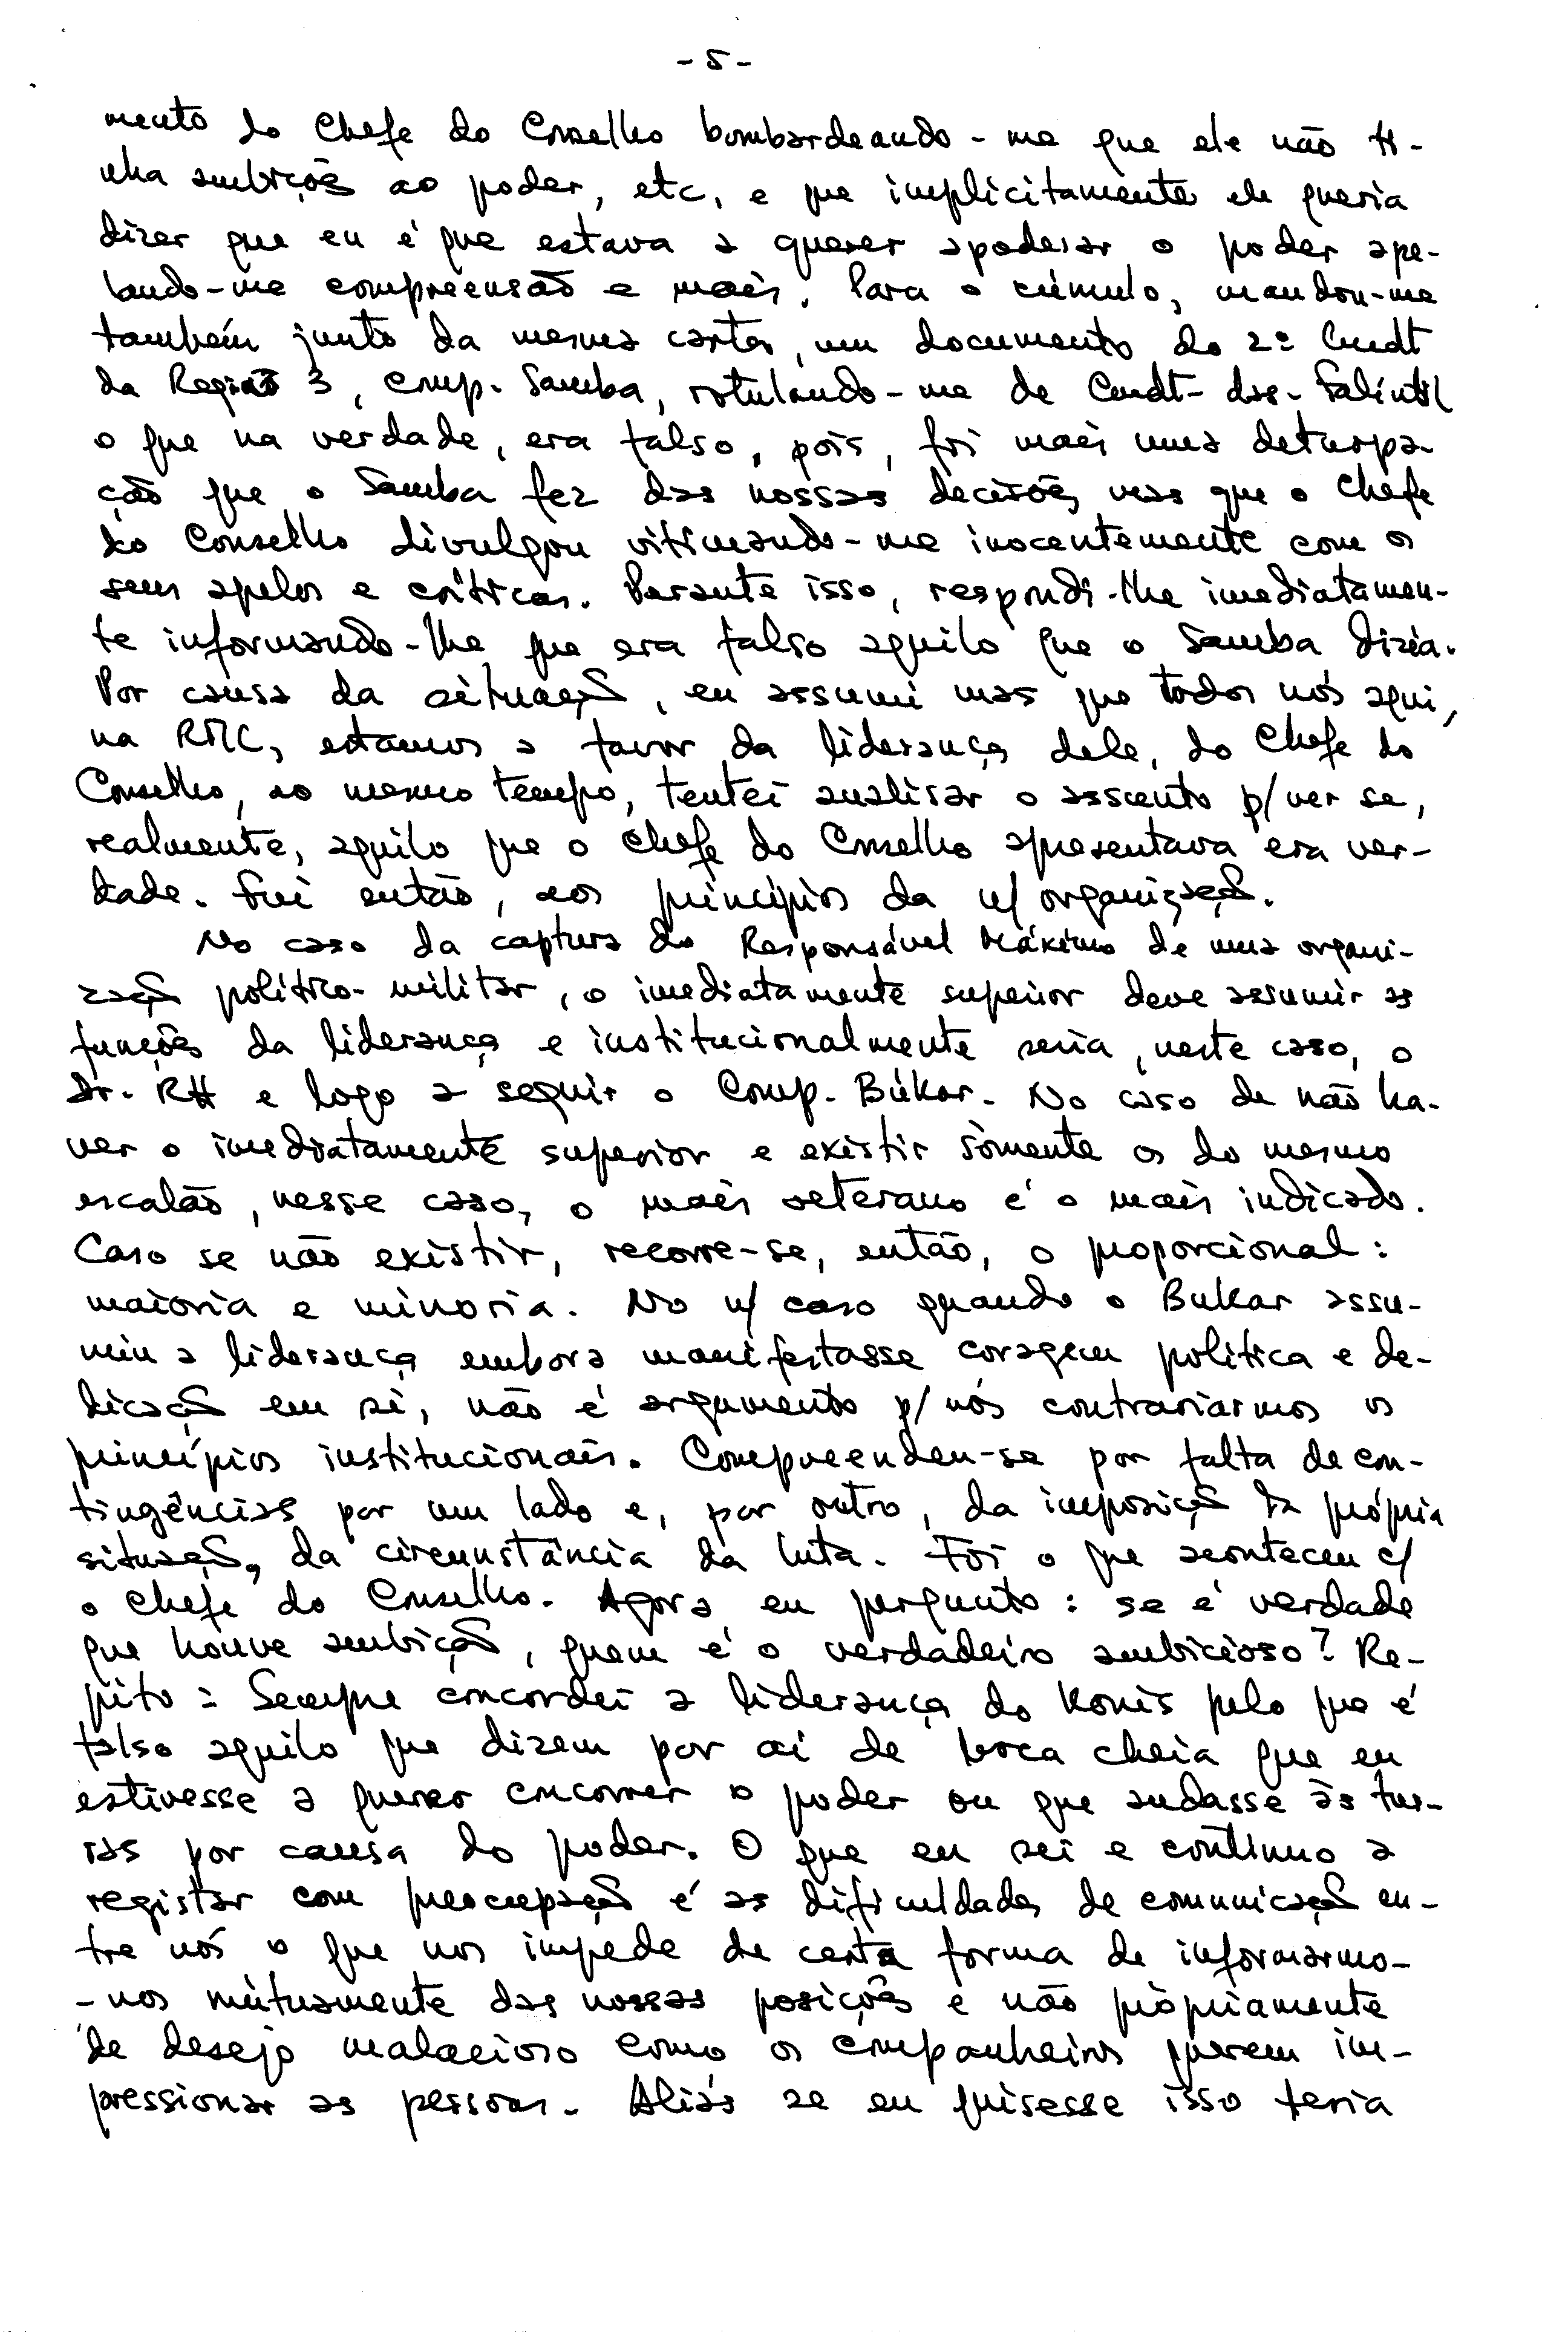 - 5 -
mento do Chefe do Conselho bombardeando-me que ele não ti-
nha ambições ao poder, etc, e que implicitamente ele queria
dizer que eu é que estava a querer apoderar o poder ape-
lando-me compreensão e mais. Para o cúmulo, mandou-me
também junto da mesma carta, um documento do 2º Cmdt
da Região 3, comp. Samba, rotulando-me de Cmdt-das-Falintil
o que na verdade, era falso, pois, foi mais uma deturpa-
ção que o Samba fez das nossas decisões mas que o Chefe
do Conselho divulgou vitimando-me inocentemente com os
seus apelos e críticas. Perante isso, respondi-lhe imediatamen-
te informando-lhe que era falso aquilo que o Samba dizia.
Por causa da situação, eu assumi mas que todos nós aqui,
na RMC, estamos a favor da liderança dele, do Chefe do
Conselho, ao mesmo tempo, tentei analisar o assunto p/ver se,
realmente, aquilo que o Chefe do Conselho apresentava era ver-
dade. Fui então, aos princípios da n/ organização.
No caso da captura do Responsável Máximo de uma organi-
zação político-militar, o imediatamente superior deve assumir as
funções da liderança e institucionalmente seria, neste caso, o
Dr. RH e logo a seguir o Comp. Búkar. No caso de não ha-
ver o imediatamente superior e existir sòmente os do mesmo
escalão, nesse caso, o mais veterano é o mais indicado.
Caso se não existir, recorre-se, então, o proporcional:
maioria e minoria. No n/ caso quando o Bukar assu-
miu a liderança embora manifestasse coragem política e de-
dicação em si, não é argumento p/ nós contrariarmos os
princípios institucionais. Compreendeu-se por falta de con-
tingências por um lado e, por outro, da imposição da própria
situação, da circunstância da luta. Foi o que aconteceu c/
o Chefe do Conselho. Agora eu pergunto: se é verdade
que houve ambição, quem é o verdadeiro ambicioso? Re-
pito: Sempre concordei a liderança do Konis pelo que é
falso aquilo que dizem por aí de boca cheia que eu
estivesse a querer concorrer o poder ou que andasse às tur-
ras por causa do poder. O que eu sei e continuo a
registar com preocupação é as dificuldades de comunicação en-
tre nós o que nos impede de certa forma de informarmo-
-nos mùtuamente das nossas posições e não pròpriamente
de desejo malacioso como os companheiros querem im-
pressionar as pessoas. Aliás se eu quisesse isso teria